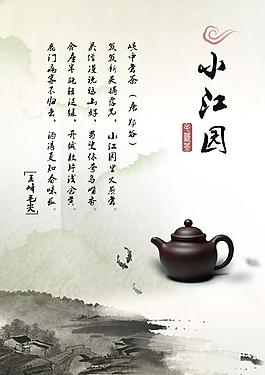 小江园
峡中尝茶（唐 郑谷）
簇簇新英摘露光，小江园里火煎尝。
吴僧漫说鸦山好，蜀叟休夸鸟嘴香。
合座半瓯轻泛绿，开缄数片浅含黄。
鹿门病客不归去，酒渴更知春味长。
[五峰毛尖]